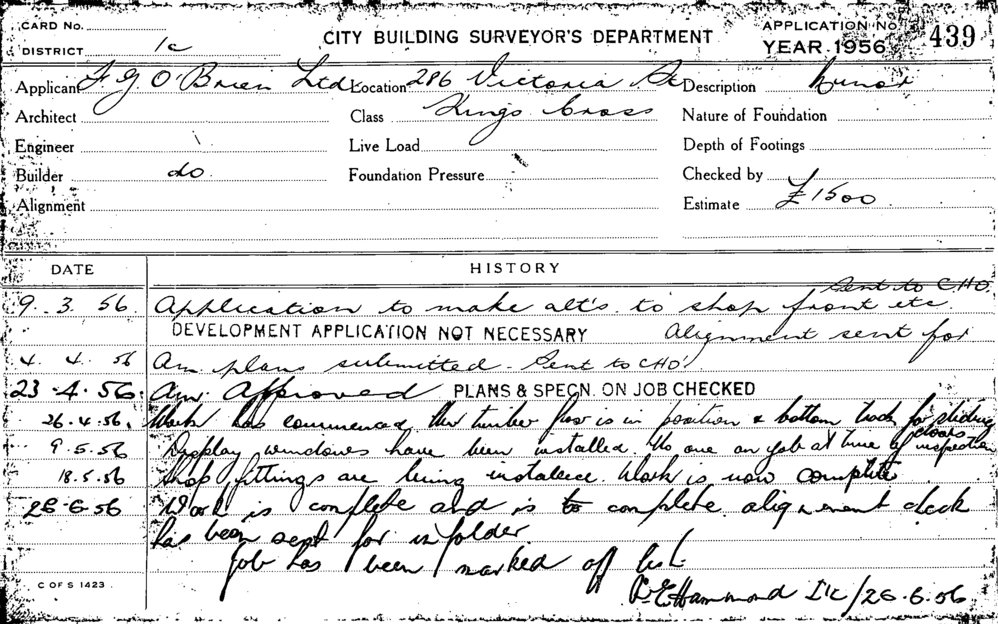 CARD No.
DISTRICT 1c
CITY BUILDING SURVEYOR'S DEPARTMENT
APPLICATION No 439
YEAR 1956
Applicant F G O'Brien Ltd Location 286 Victoria St Description Minor
Architect Class Kings Cross Nature of Foundation
Engineer Live Load Depth of Footings
Builder do Foundation Pressure Checked by
Alignment Estimate £1500
DATE HISTORY
Sent to CHO
9. 3. 56. Application to make alt's to shop front etc.
DEVELOPMENT APPLICATION NOT NECESSARY Alignment sent for
4. 4. 56 Am. plans submitted. Sent to CHO
23.4.56. Am. Approved PLANS & SPECN. ON JOB CHECKED
26.4.56. Work has commenced, the timber floor is in position & bottom track for sliding doors
9.5.56 Display windows have been installed. No one on job at time of inspection
18.5.56 Shop fittings are being installed. Work is now complete
26-6-56 Work is complete and is to complete alignement check
has been sent for in folder
Job has been marked off list
Hammond I'c/26.6.56
C OF S 1423